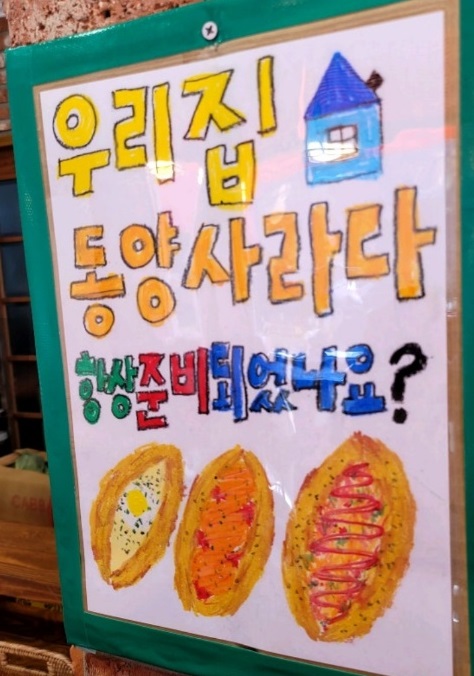 우리집
동양사라다
항상준비되었나요?